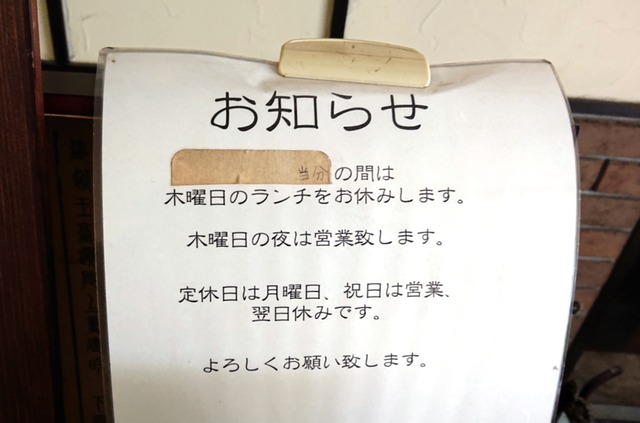 お知らせ
当分の間は
木曜日のランチをお休みします。
木曜日の夜は営業致します。
定休日は月曜日、祝日は営業、
翌日休みです。
よろしくお願い致します。